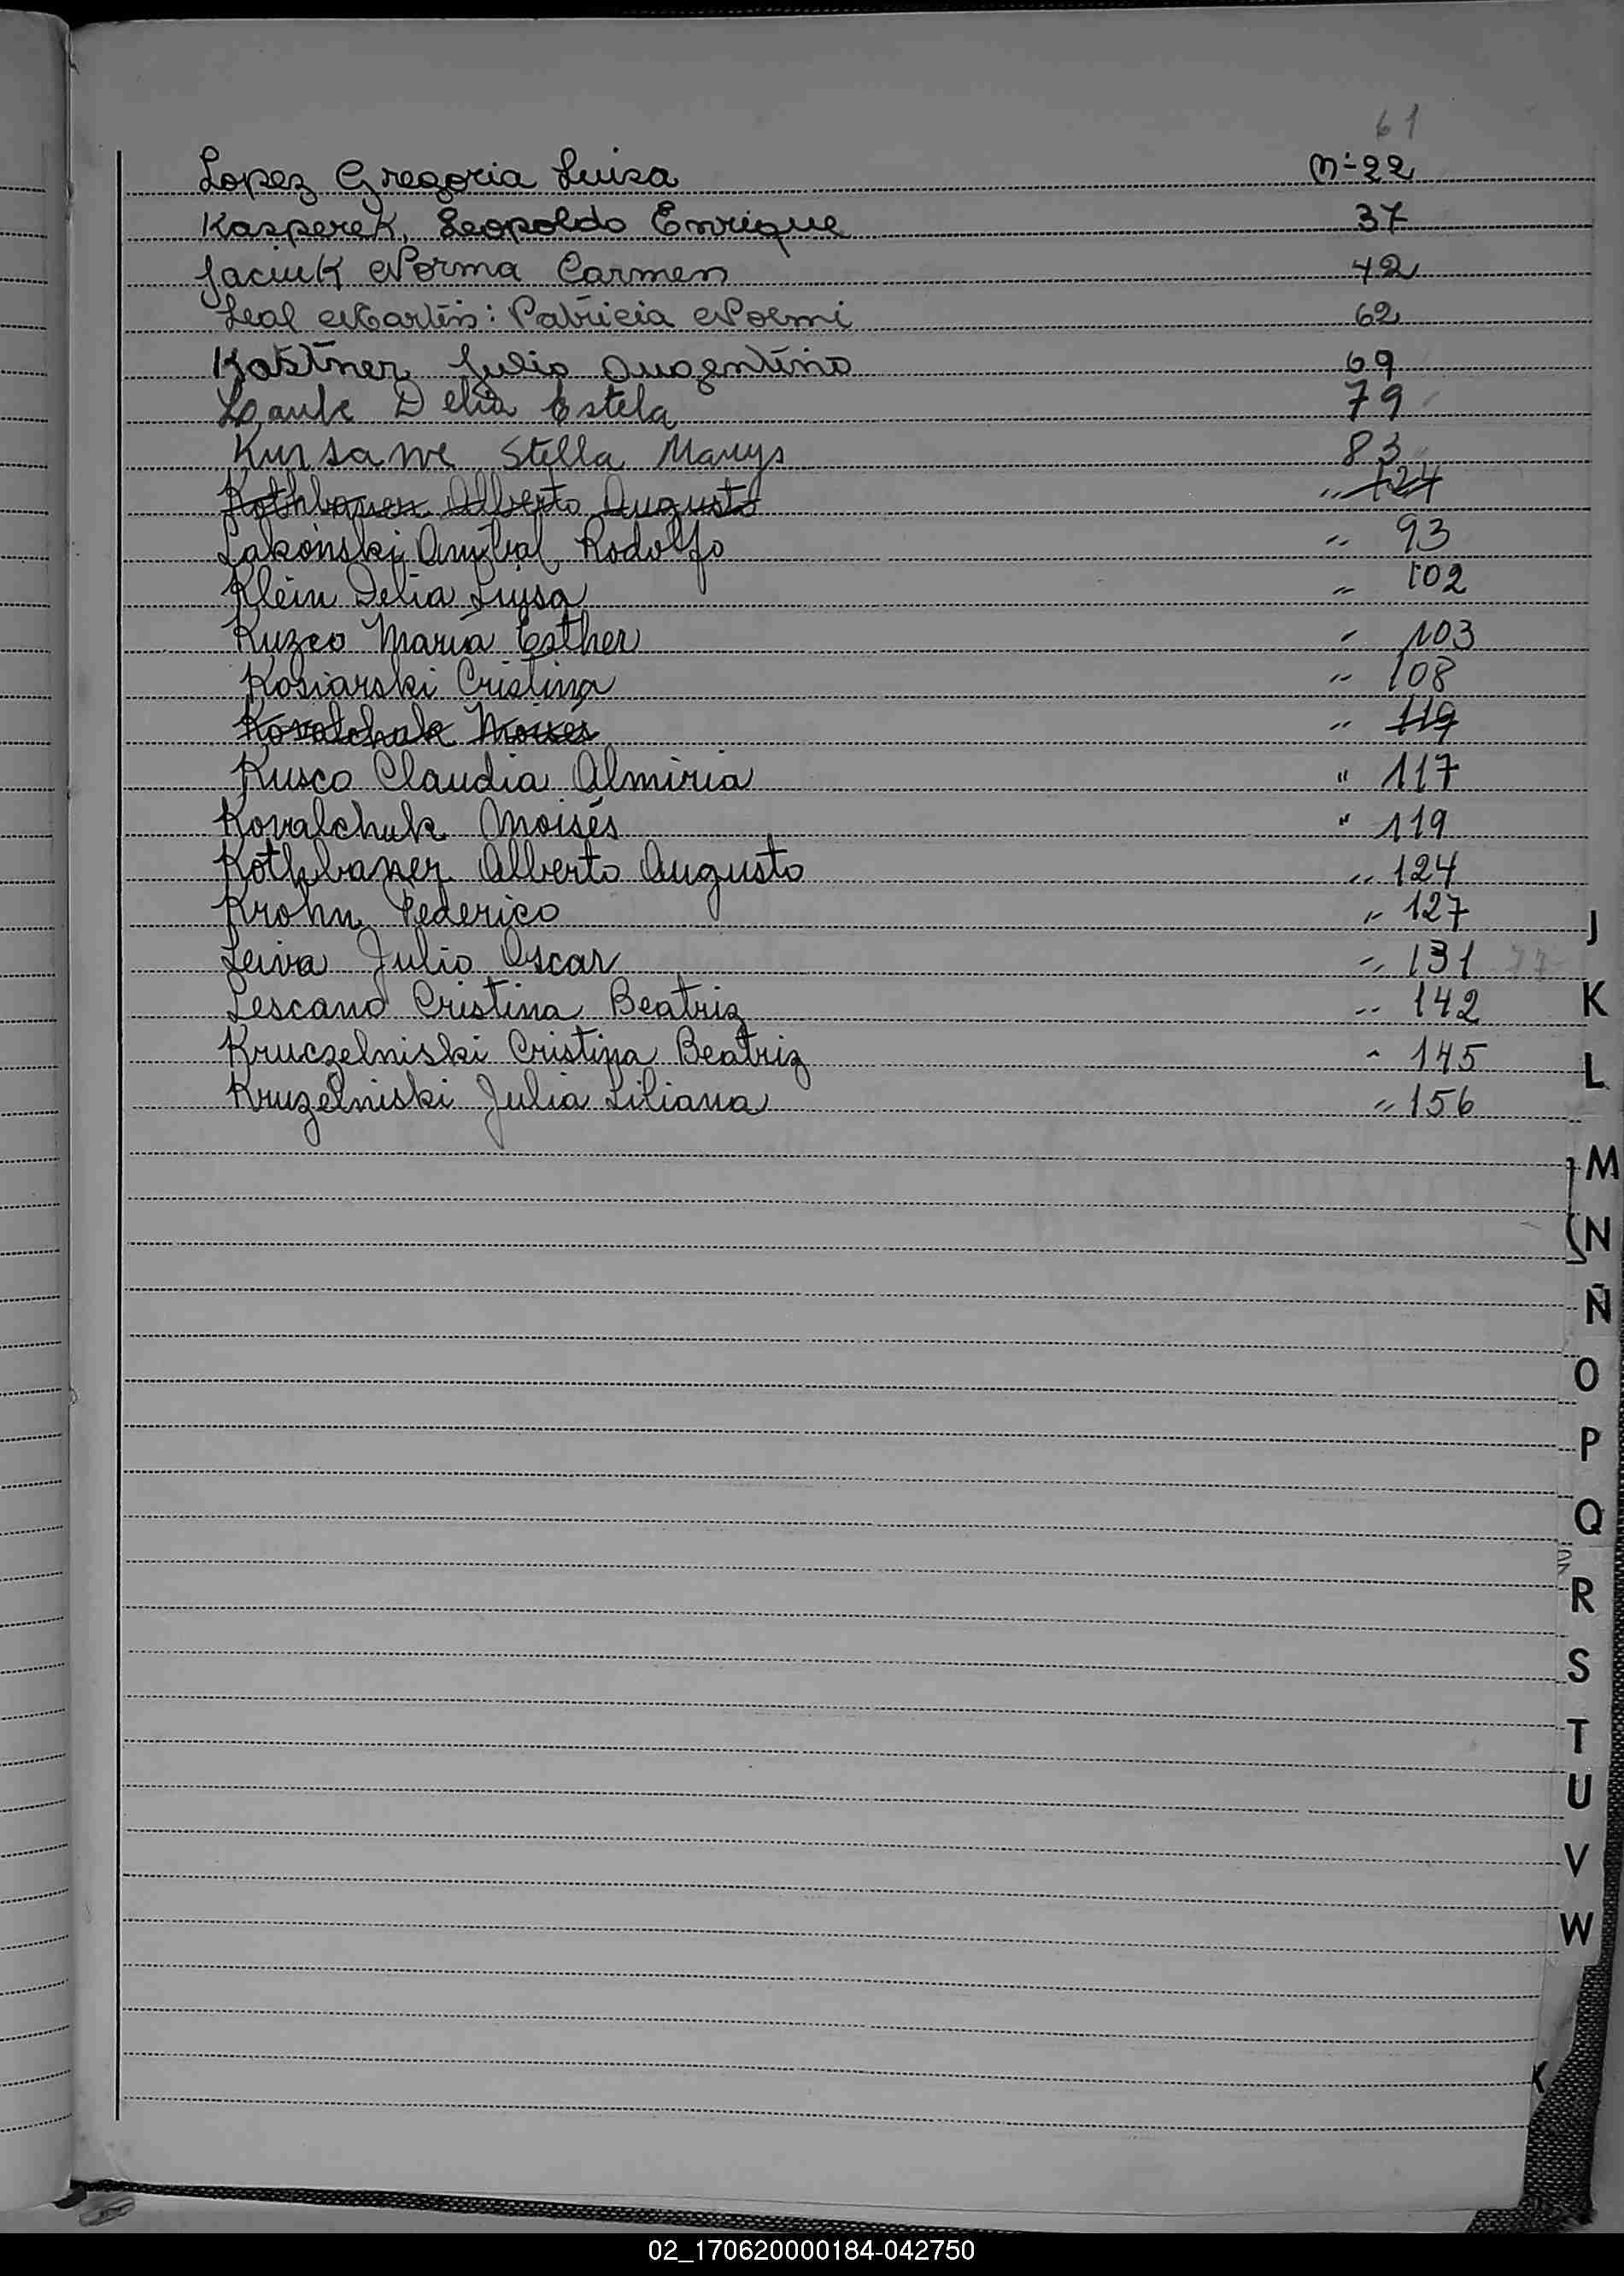 61
Lopez Gregoria Luisa Nº 22
Kasperek, Leopoldo Enrique 37
Jaciuk Norma Carmen 42
Leal Martin: Patricia Noemi 62
Kastner Julio 69
Delia Estela 79
Kursawe Stella Marys 83
Kothbauer Alberto Augusto " 124
Lakonski Anibal Rodolfo " 93
Klein Delia Luisa " 102
Kuzco Maria Esther " 103
Kosiarski Cristina " 108
Kovalchuk Moises " 119
Kusco Claudia Almiria " 117
Kovalchuk Moisés " 119
Kothbaner Alberto Augusto " 124
Krohn Federico " 127
Leiva Julio Oscar " 131
Lescano Cristina Beatriz " 142
Kruczelniski Cristina Beatriz " 145
Kruzelniski Julia Liliana " 156
J
K
L
M
N
Ñ
O
P
Q
R
S
T
U
V
W
02_170620000184-042750